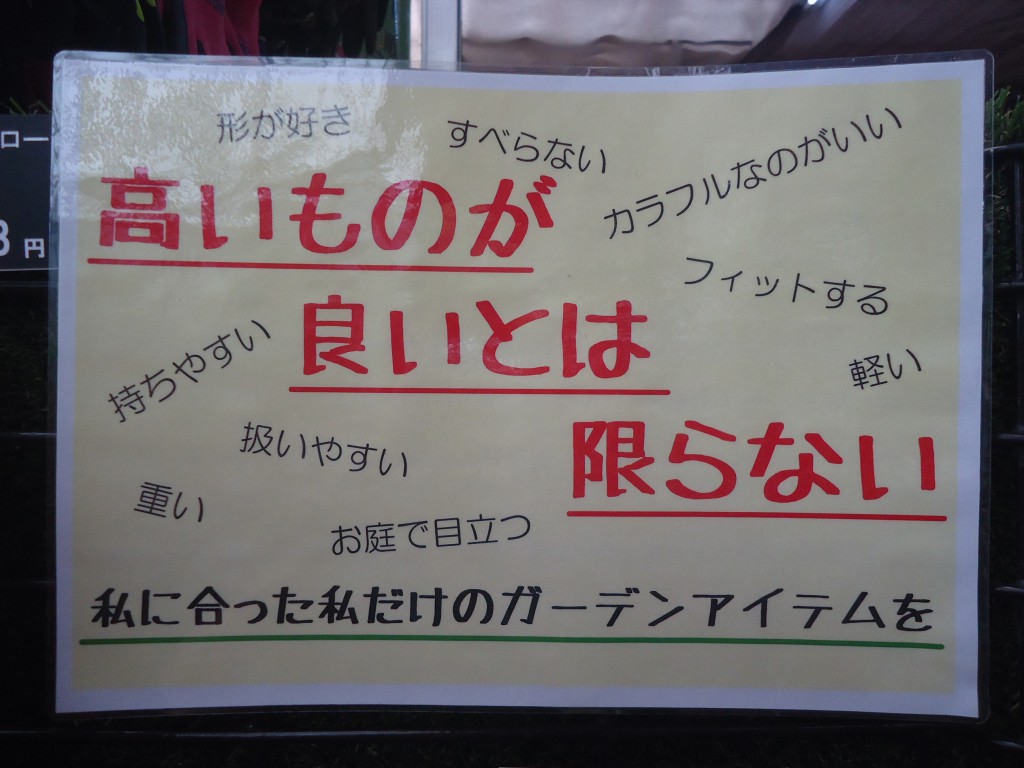 形が好き
すべらない
カラフルなのがいい
高いものが
フィットする
良いとは
持ちやすい
軽い
扱いやすい
限らない
重い
お庭で目立つ
私に合った私だけのガーデンアイテムを
ロー
3円